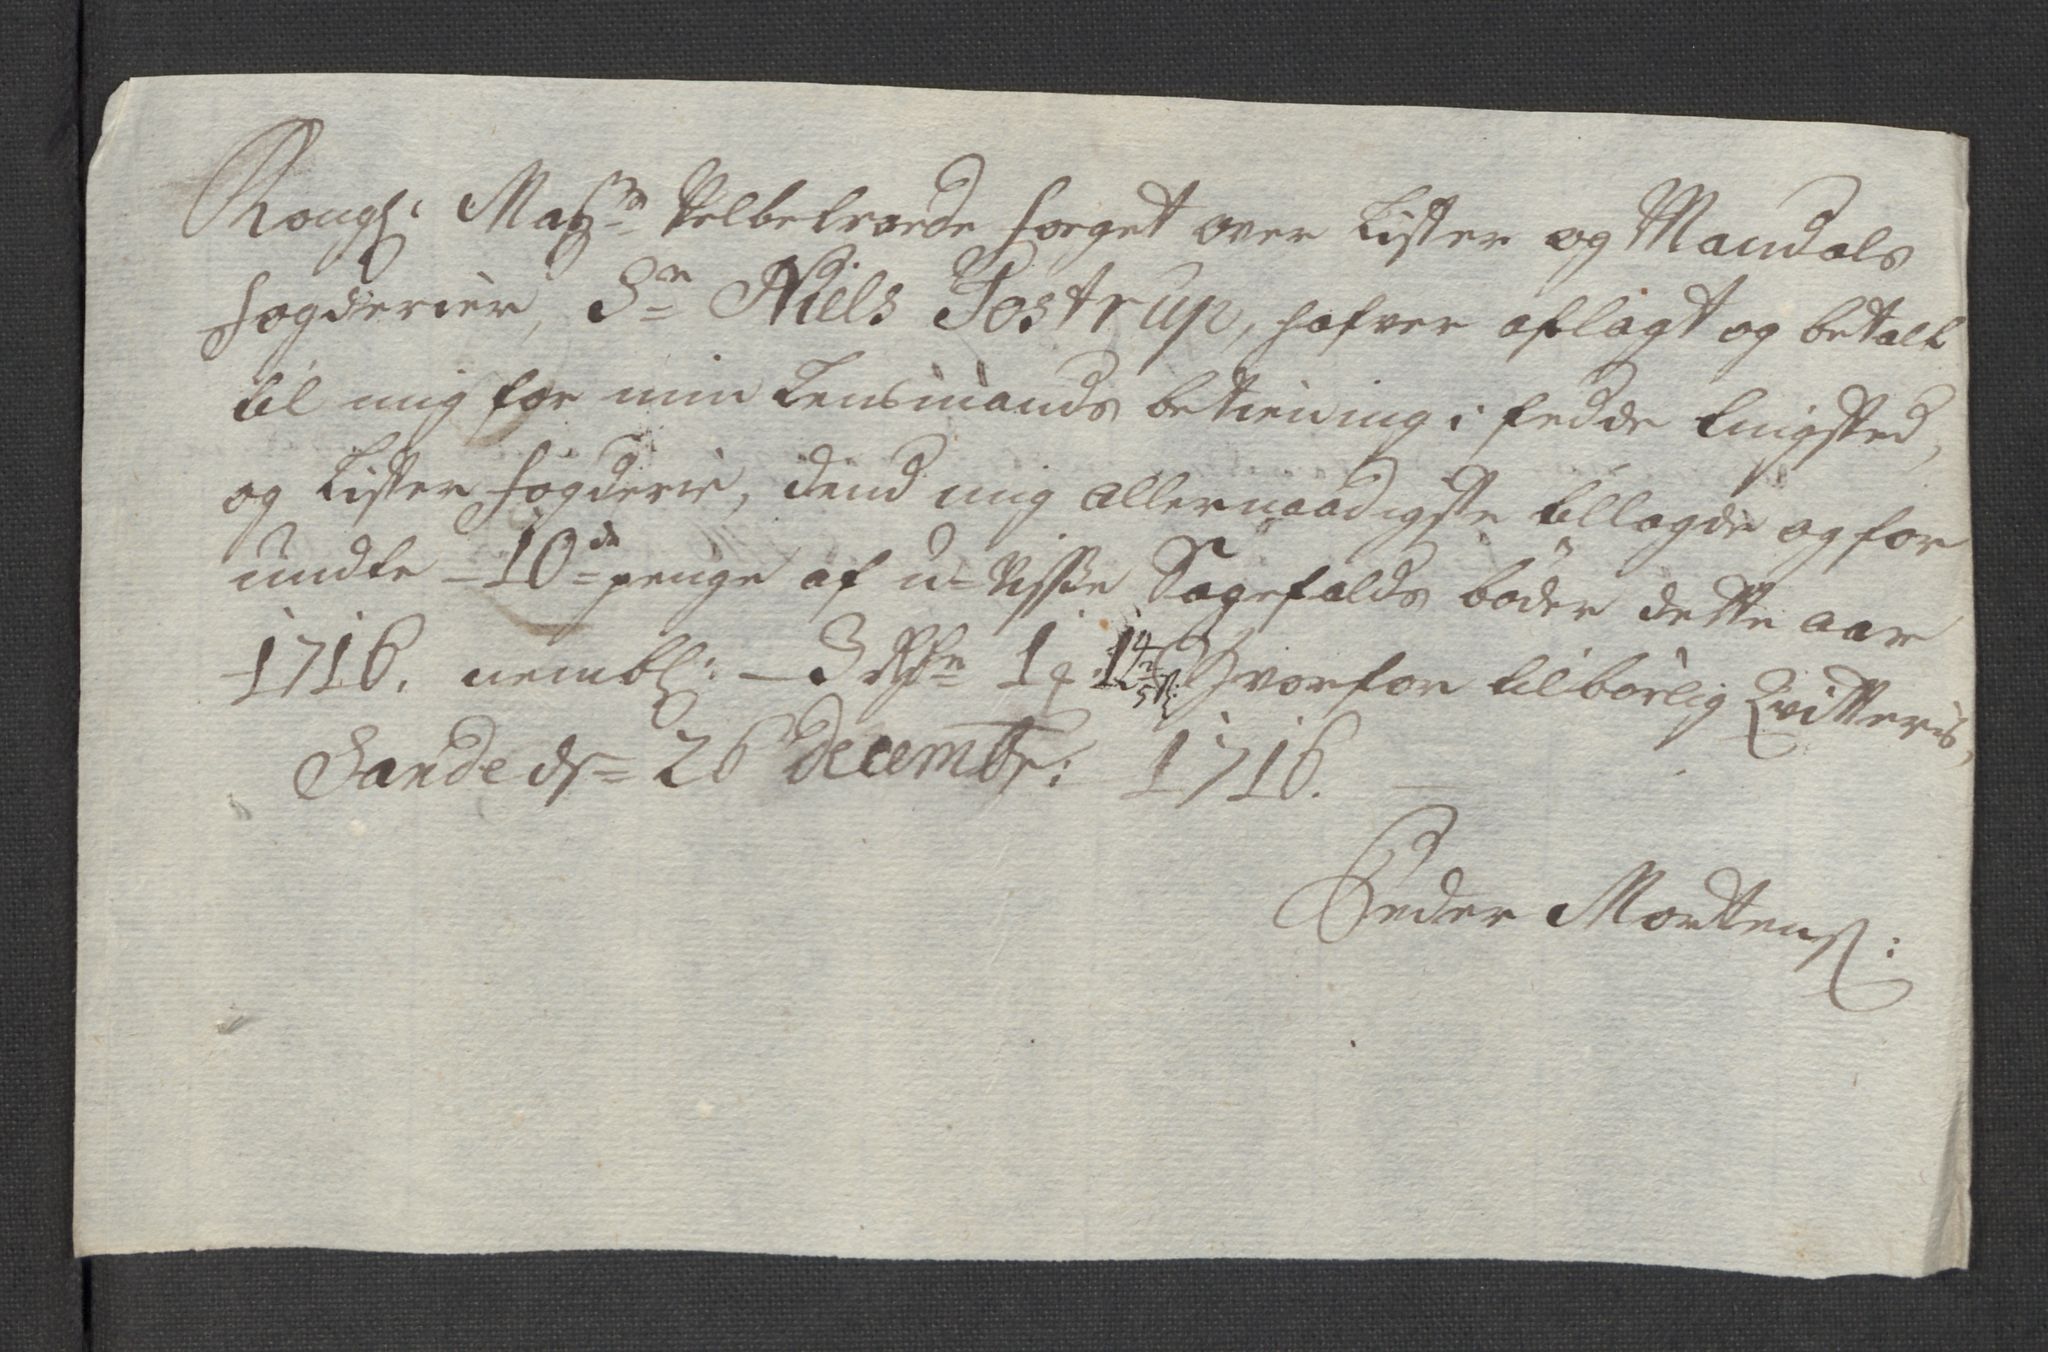 Kongl: May:ts Velbetroede foeget over Lister og Mandals
fogderier, Sr Niels Tostrup, hafver aflagt og betalt
til mig for min Lensmands betiening i fedde Lingsted,
og Lister fogderie, dend mig allernaadigste tillagde og for
undte - 10de penge af u-visse Sagefalds bøder dette aar
1716. nembl: - 3 Rdr 1 14 2/5 s: Hvorfor tilbørlig Qvitteris,
Sande ds 26 decembr: 1716.
Peder Mortens: